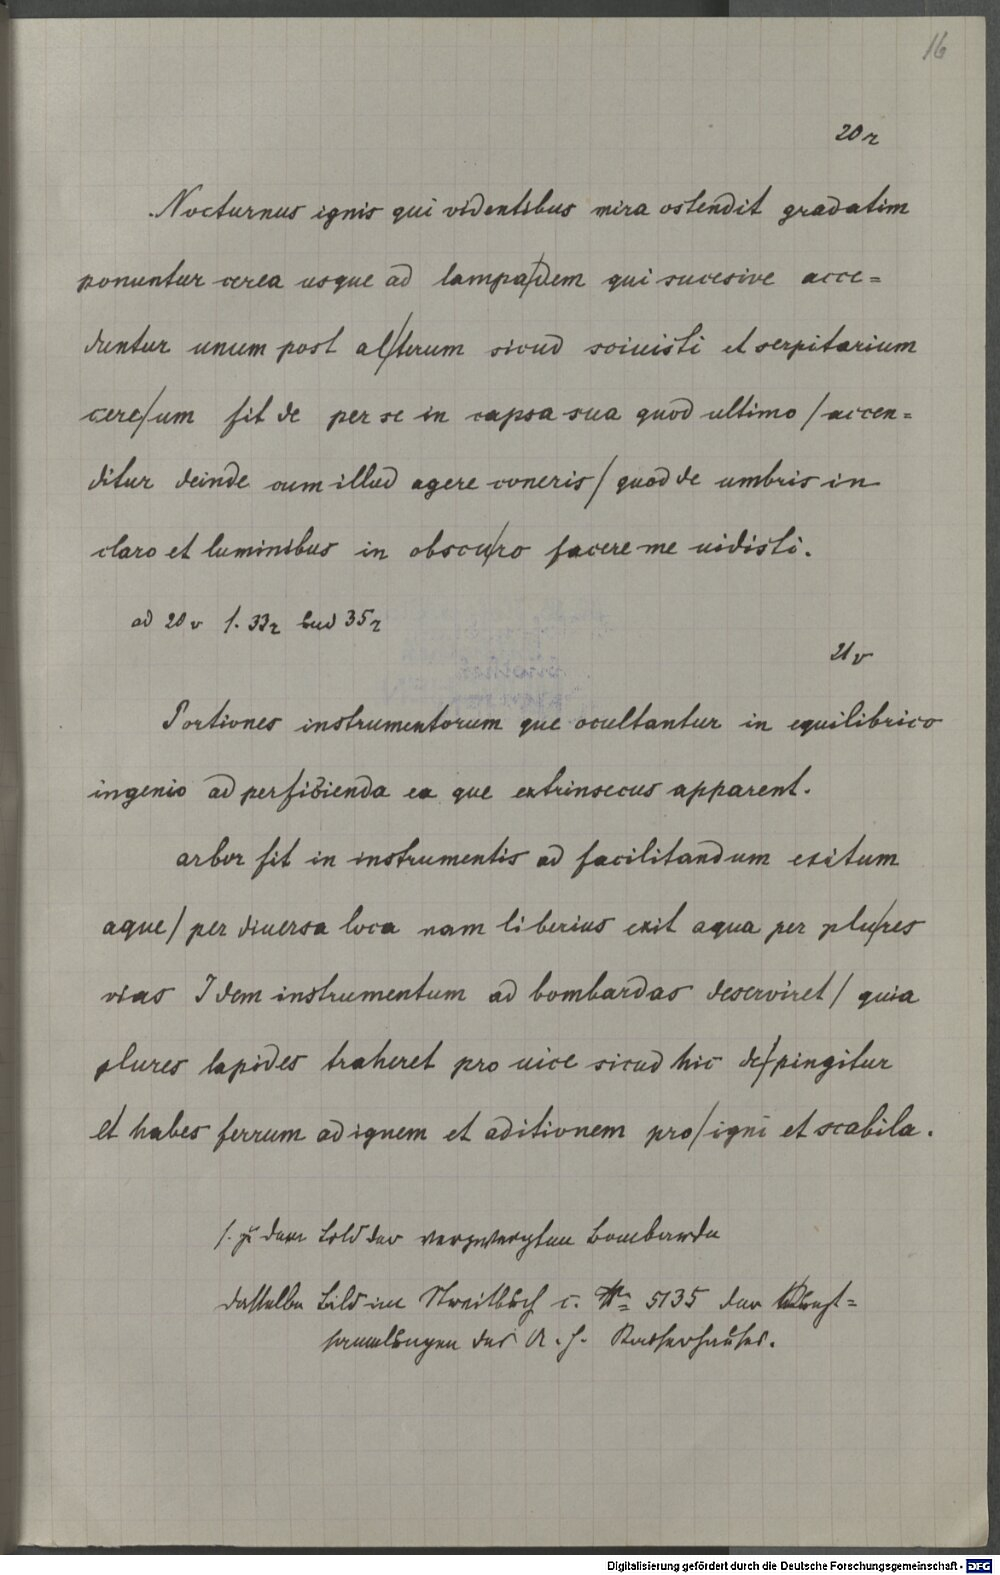 16
20r
Nocturnus ignis qui videntibus mira ostendit gradatim
ponuntur cerea usque ad lampa/dem qui sucesive acce=
duntur unum post al/terum sicud scivisti et serpitarium
cere/um fit de per se in capsa sua quod ultimo / accen=
ditur deinde cum illud agere coneris / quod de umbris in
claro et luminibus in obscu/ro facere me uidisti.
ad 20v f. 33r und 35r
21v
Portiones instrumentorum que ocultantur in equilibrico
ingenio ad perficienda ea que extrinsecus apparent.
arbor fit in instrumentis ad facilitandum exitum
aque / per diuersa loca nam liberius exit aqua per plu/res
vias Idem instrumentum ad bombardas deserviret / quia
plures lapides traheret pro uice sicud hic de/pingitur
et habes ferrum ad ignem et aditionem pro / igni et scabila.
f. zu dem Bild der verzweigten Bombarde
dasselbe Bild im Streitbuch c. № 5135 der Kunst=
sammlungen des A. h. Kaiserhauses.
Digitalisierung gefördert durch die Deutsche Forschungsgemeinschaft - DFG